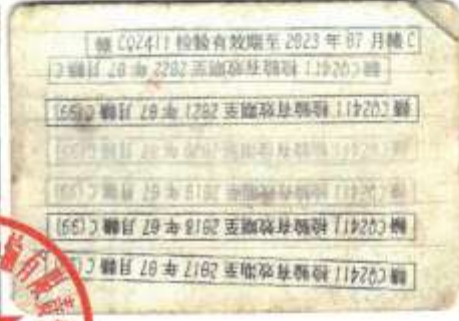 赣CQ2411 检验有效期至 2023 年 07 月赣C
赣CQ2411 检验有效期至 2022 年 07 月赣C
赣CQ2411 检验有效期至 2021 年 07 月赣C(99)
赣CQ2411 检验有效期至 2020 年 07 月赣C(99)
赣CQ2411 检验有效期至 2019 年 07 月赣C(99)
赣CQ2411 检验有效期至 2018 年 07 月赣C(99)
赣CQ2411 检验有效期至 2017 年 07 月赣C(99)
有限